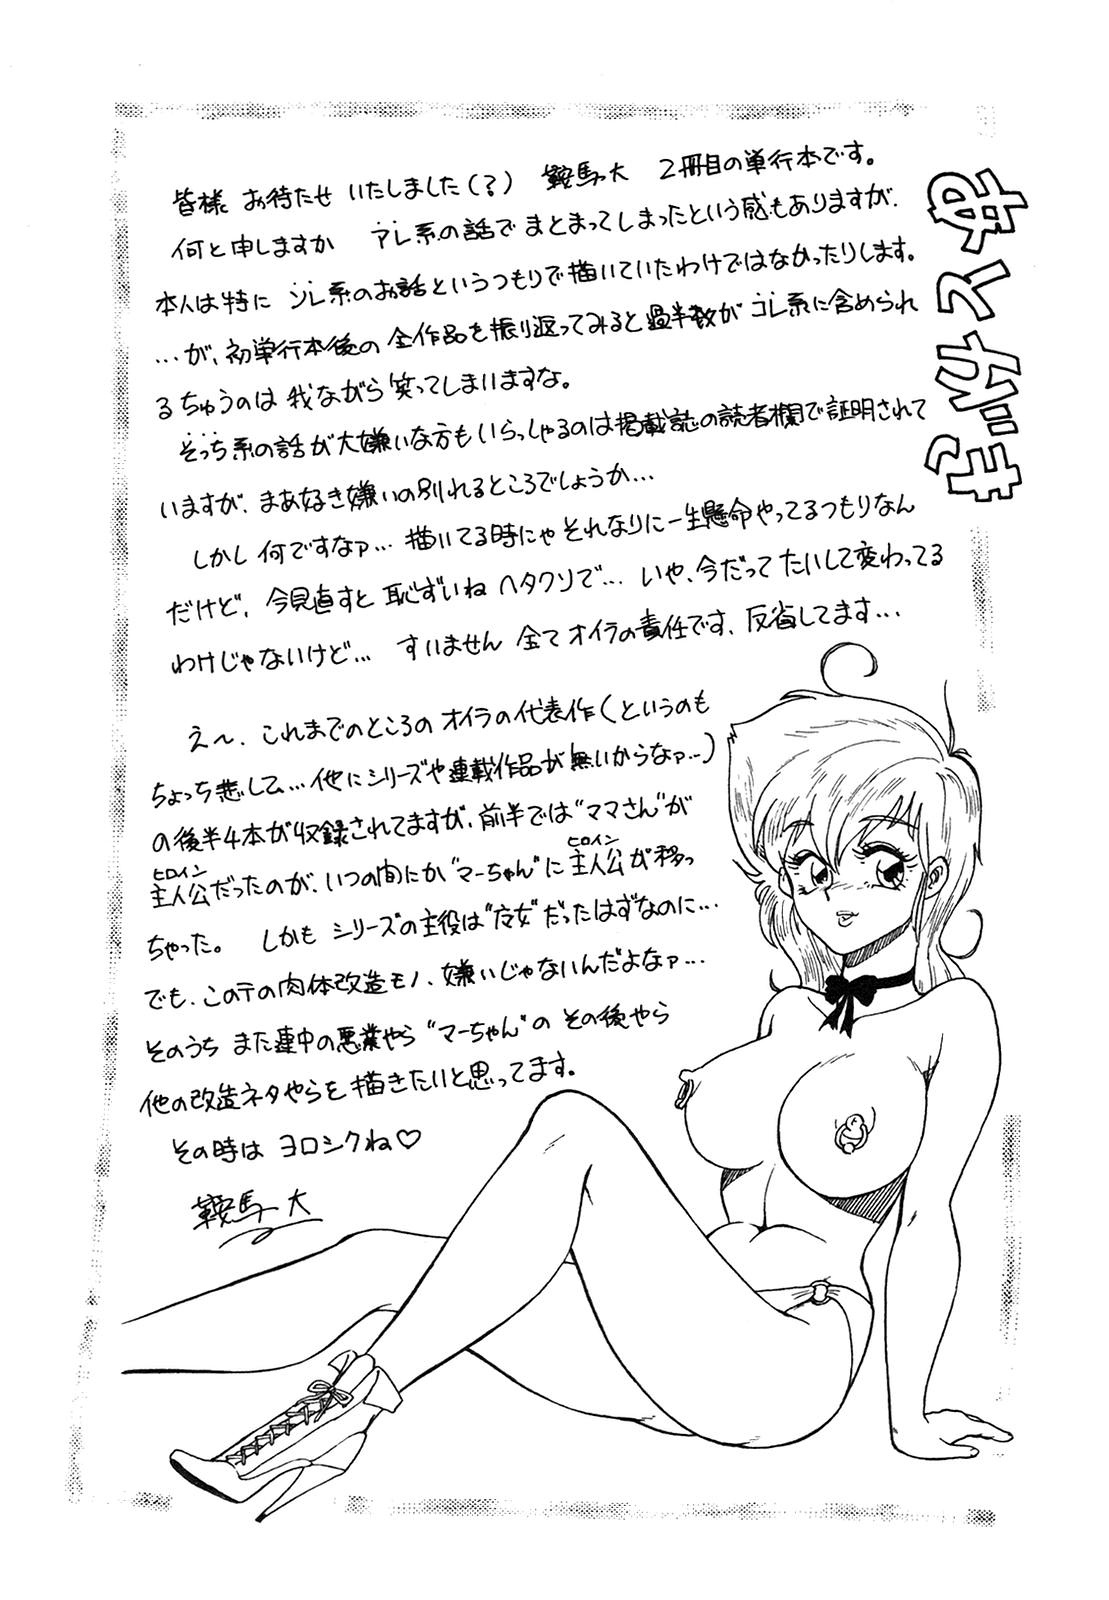 皆様 お待たせ いたしました(?) 鞍馬大 2冊目の単行本です。
何と申しますか アレ系の話で まとまってしまったという感もありますが、
本人は特に ソレ系のお話というつもりで描いていたわけではなかったりします。
…が、初単行本後の 全作品を振り返ってみると過半数が コレ系に含められ
るちゅうのは 我ながら 笑ってしまいますな。
そっち系の話が大嫌いな方もいらっしゃるのは掲載誌の読者欄で証明されて
いますが、まあ好き嫌いの別れるところでしょうか…
しかし 何ですなァ… 描いてる時にゃ それなりに一生懸命やってるつもりなん
だけど、今見直すと 恥ずいね ヘタクソで… いや、今だって たいして変わってる
わけじゃないけど… すいません 全てオイラの責任です、反省してます…
え〜、これまでのところの オイラの代表作(というのも
ちょっち悲しい…他にシリーズや連載作品が無いからなァ…)
の後半4本が収録されてますが、前半では“ママさん”が
主人公だったのが、いつの間にか“マーちゃん”に 主人公が移っ
ヒロイン ヒロイン
ちゃった。 しかも シリーズの主役は だったはずなのに…
でも、このテの肉体改造モノ、嫌いじゃないんだよなァ…
そのうち また連中の悪業やら “マーちゃん”の その後やら
他の改造ネタやらを 描きたいと思ってます。
その時は ヨロシクね♡
鞍馬 大